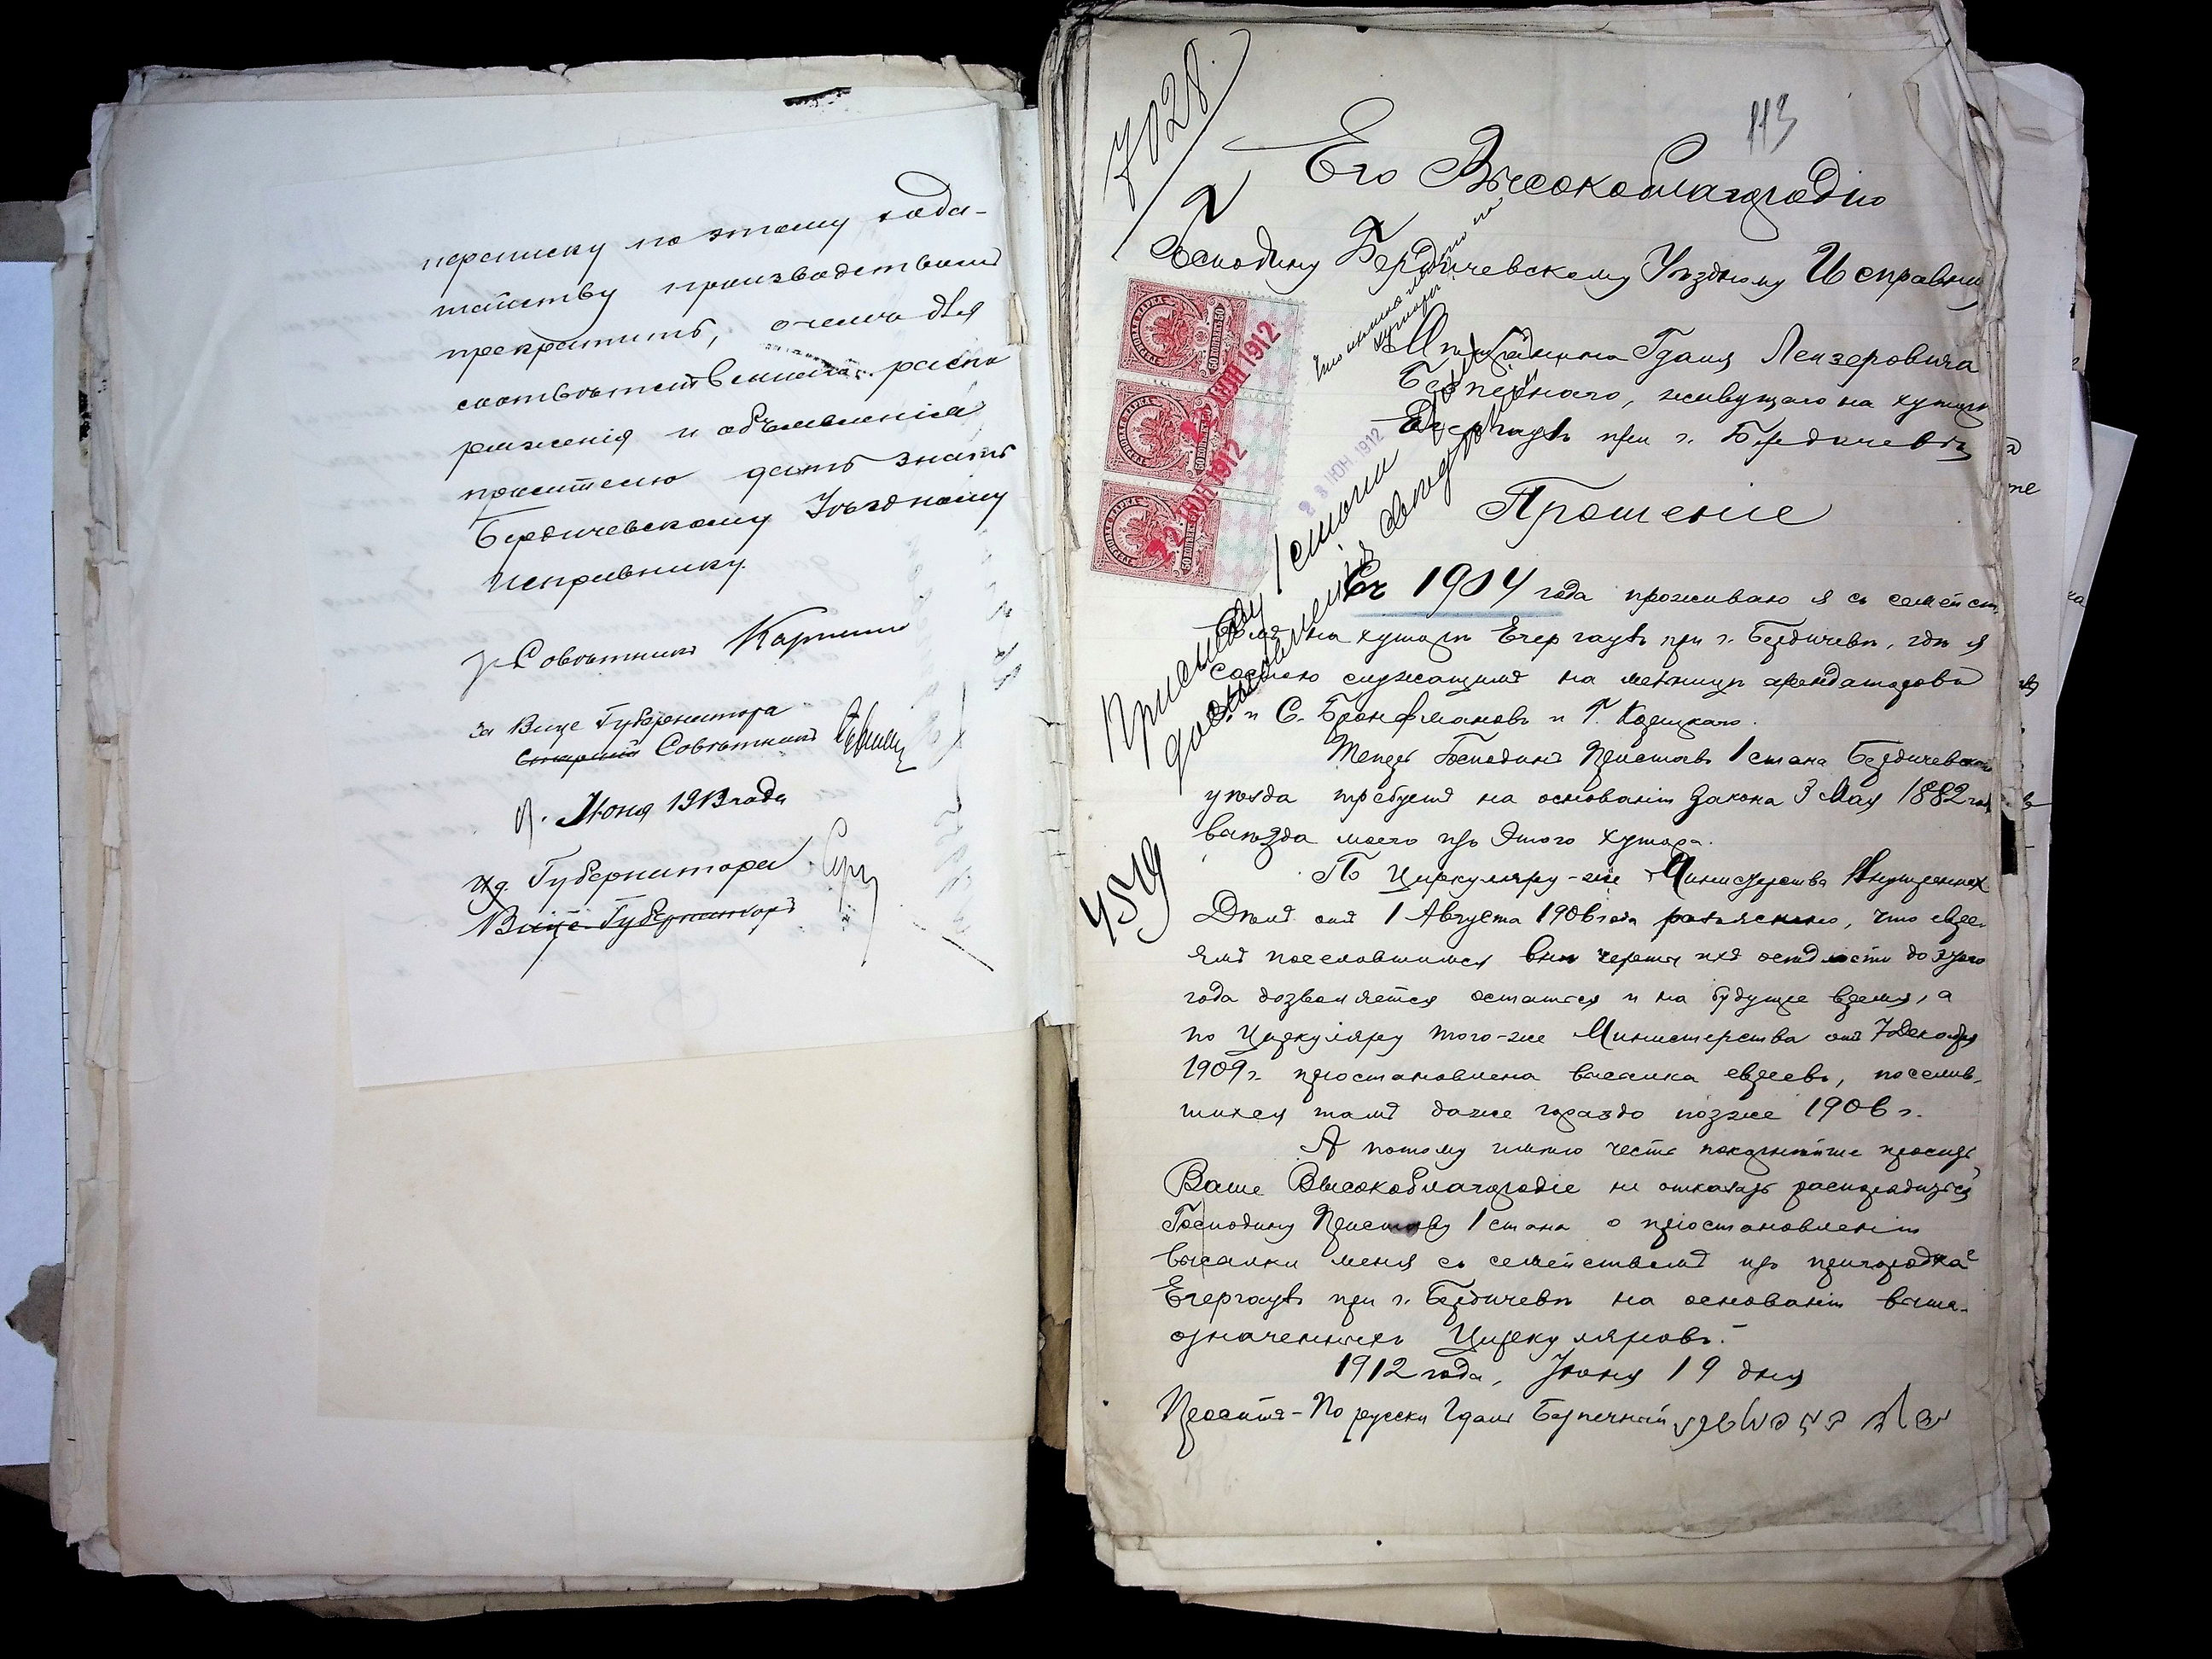 переписку по этому хода-
тайству производствомъ
прекратить, о чемъ для
соотвѣтственнаго распо
ряженія и объявленія
просителю дать знать
Бердичевскому Уѣздному
Исправнику.
Совѣтникъ
За Вице Губернатора
Старшій Совѣтникъ
Іюня 1913 года
И.д. Губернатора
Вице-Губернаторъ
7028.
113
Его Высокоблагородію
Господину Бердичевскому Уѣздному Исправни
Мѣщанина Гдаля Лейзеровича
живущаго на хуторѣ
при г. Бердичевѣ
22 ІЮН 1912
22 ІЮН 1912
23 ІЮН 1912
Приставу 1 стана
Прошеніе
Съ 1904 года проживаю я съ семейст
вомъ на хуторѣ Егергаузъ при г. Бердичевѣ, гдѣ я
состою служащимъ на мельницѣ арендаторовъ
и С. Бронфмановъ и Г. Козицкаго.
Теперь Господинъ Приставъ 1 стана Бердичевскаго
уѣзда требуетъ на основаніи Закона 3 Мая 1882 года
выѣзда моего изъ этого хутора.
По Циркуляру-же Министерства Внутреннихъ
Дѣлъ отъ 1 Августа 1906 года разъяснено, что евре-
ямъ поселовшимся внѣ черты ихъ осѣдлости до этого
года дозволяется остаться и на будущее время, а
по Циркуляру того-же Министерства отъ 7 Декабря
1909 г. пріостановлена высылка евреевъ, поселив-
шихся тамъ даже гораздо позже 1906 г.
А потому имѣю честь покорнѣйше просить
Ваше Высокоблагородіе не отказать распорядиться
Господину Приставу 1 стана о пріостановленіи
высылки меня съ семействомъ изъ пригородка
Егергаузъ при г. Бердичевѣ на основаніи выше-
означенныхъ Циркуляровъ.
1912 года, Іюня 19 дня
4519
По русски Гдаль